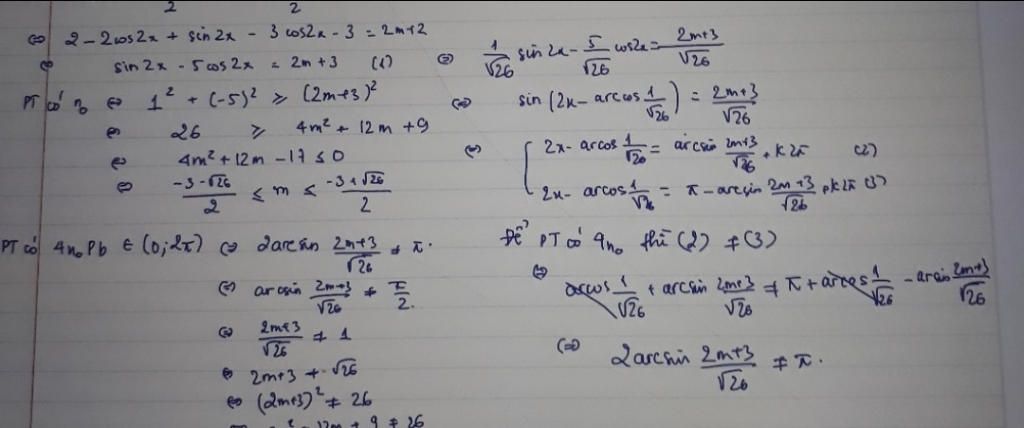 2 2
⇔ 2 - 2cos2x + sin2x - 3cos2x - 3 = 2m+2
⇔ sin2x - 5cos2x = 2m+3 (1)
PT có n₀ ⇔ 1² + (-5)² ≥ (2m+3)²
⇔ 26 ≥ 4m² + 12m + 9
⇔ 4m² + 12m - 17 ≤ 0
⇔ (-3-√26)/2 ≤ m ≤ (-3+√26)/2
⇔ 1/√26 sin2x - 5/√26 cos2x = (2m+3)/√26
⇔ sin(2x - arcos 1/√26) = (2m+3)/√26
⇔ [ 2x - arcos 1/√26 = arcsin (2m+3)/√26 + k2π (2)
2x - arcos 1/√26 = π - arcsin (2m+3)/√26 + k2π (3)
PT có 4n₀ Pb ∈ (0;2π) ⇔ 2arcsin (2m+3)/√26 ≠ π.
⇔ arcsin (2m+3)/√26 ≠ π/2.
⇔ (2m+3)/√26 ≠ 1
⇔ 2m+3 ≠ √26
⇔ (2m+3)² ≠ 26
12m + 9 ≠ 26
Để PT có 4n₀ thì (2) ≠ (3)
⇔ arcos 1/√26 + arcsin (2m+3)/√26 ≠ π + arcos 1/√26 - arcsin (2m+3)/√26
⇔ 2arcsin (2m+3)/√26 ≠ π.